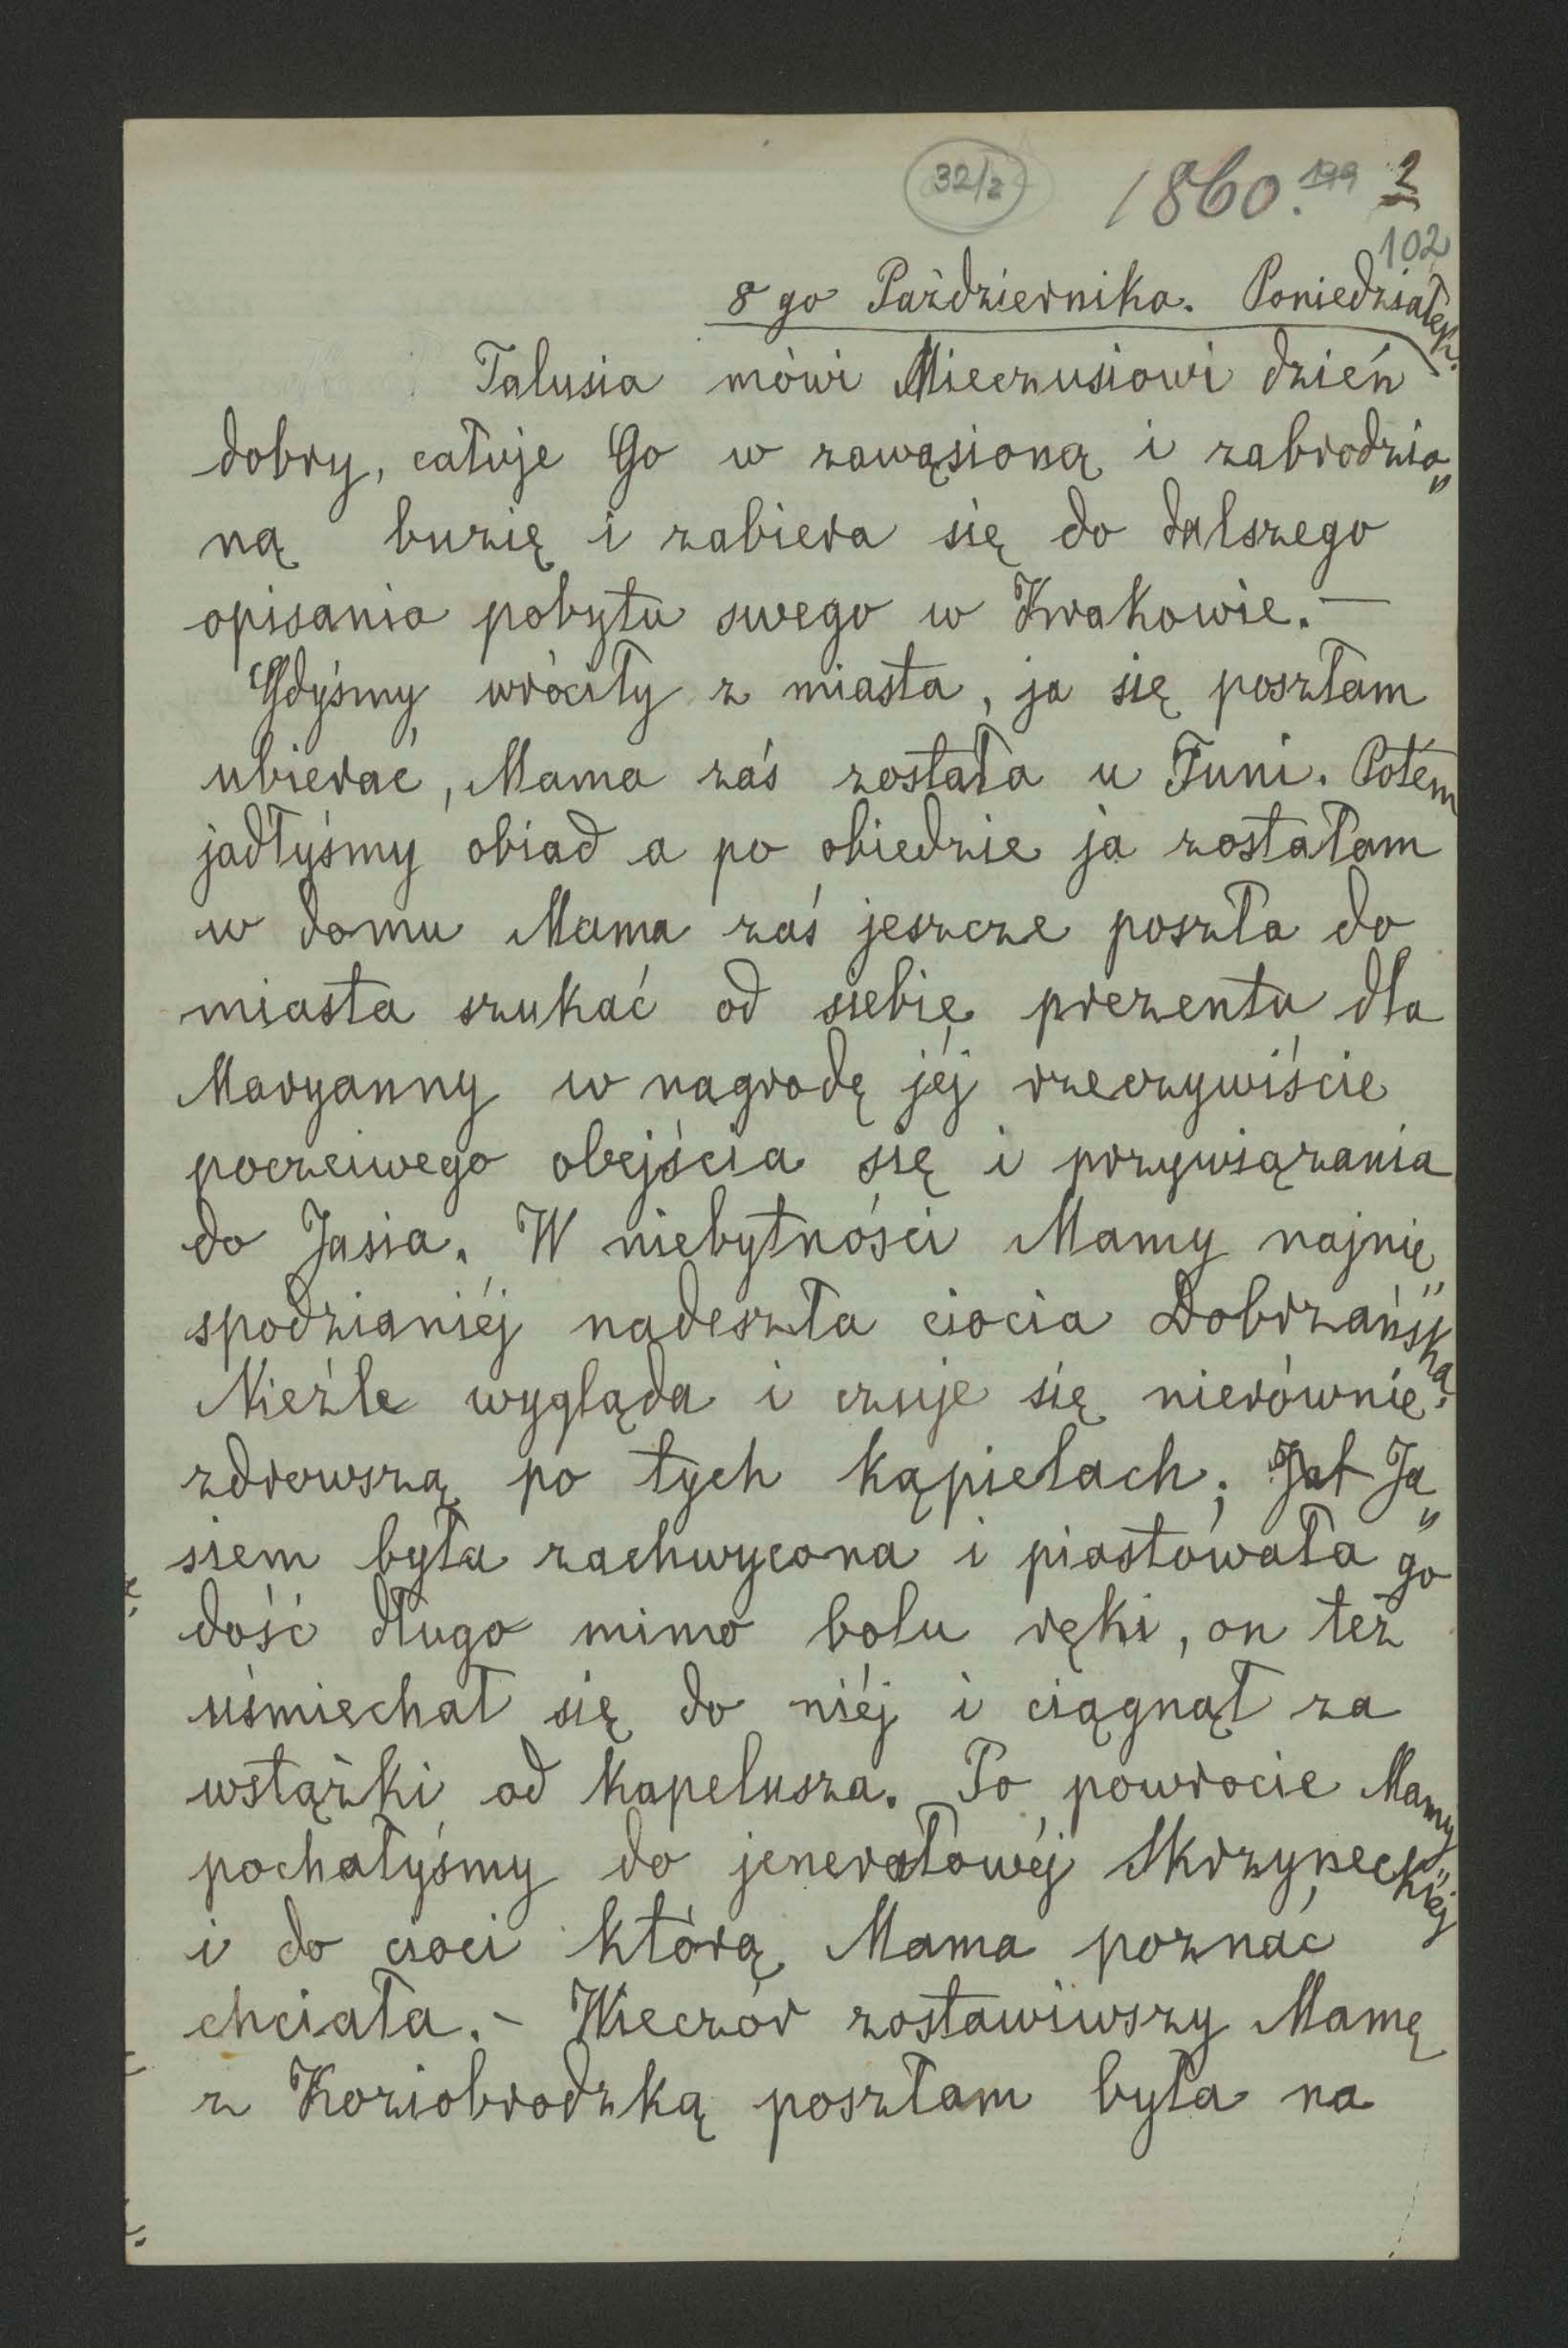 32/2 1860. 199 2
102
8go Października. Poniedziałek.
Talusia mówi Mieczusiowi dzień
dobry, całuje Go w zawąsioną i zabrodzio„
ną buzię i zabiera się do dalszego
opisania pobytu swego w Krakowie. —
Gdyśmy wróciły z miasta, ja się poszłam
ubierać, Mama zaś została u Tuni. Potém
jadłyśmy obiad a po obiedzie ja zostałam
w domu Mama zaś jeszcze poszła do
miasta szukać od siebie prezentu dla
Maryanny w nagrodę jéj rzeczywiście
poczciwego obejścia się i przywiązania
do Jasia. W niebytności Mamy najnie„
spodzianiéj nadeszła ciocia Dobrzańska.
Nieźle wygląda i czuje się nierównie
zdrowszą po tych kąpielach; Ja„
siem była zachwycona i piastowała go
dość długo mimo bolu ręki, on też
uśmiechał się do niéj i ciągnął za
wstążki od kapelusza. Po powrocie Mamy
pochałyśmy do jenerałowéj Skrzyneckiéj
i do cioci którą Mama poznać
chciała. – Wieczór zostawiwszy Mamę
z Koziobrodzką poszłam była na